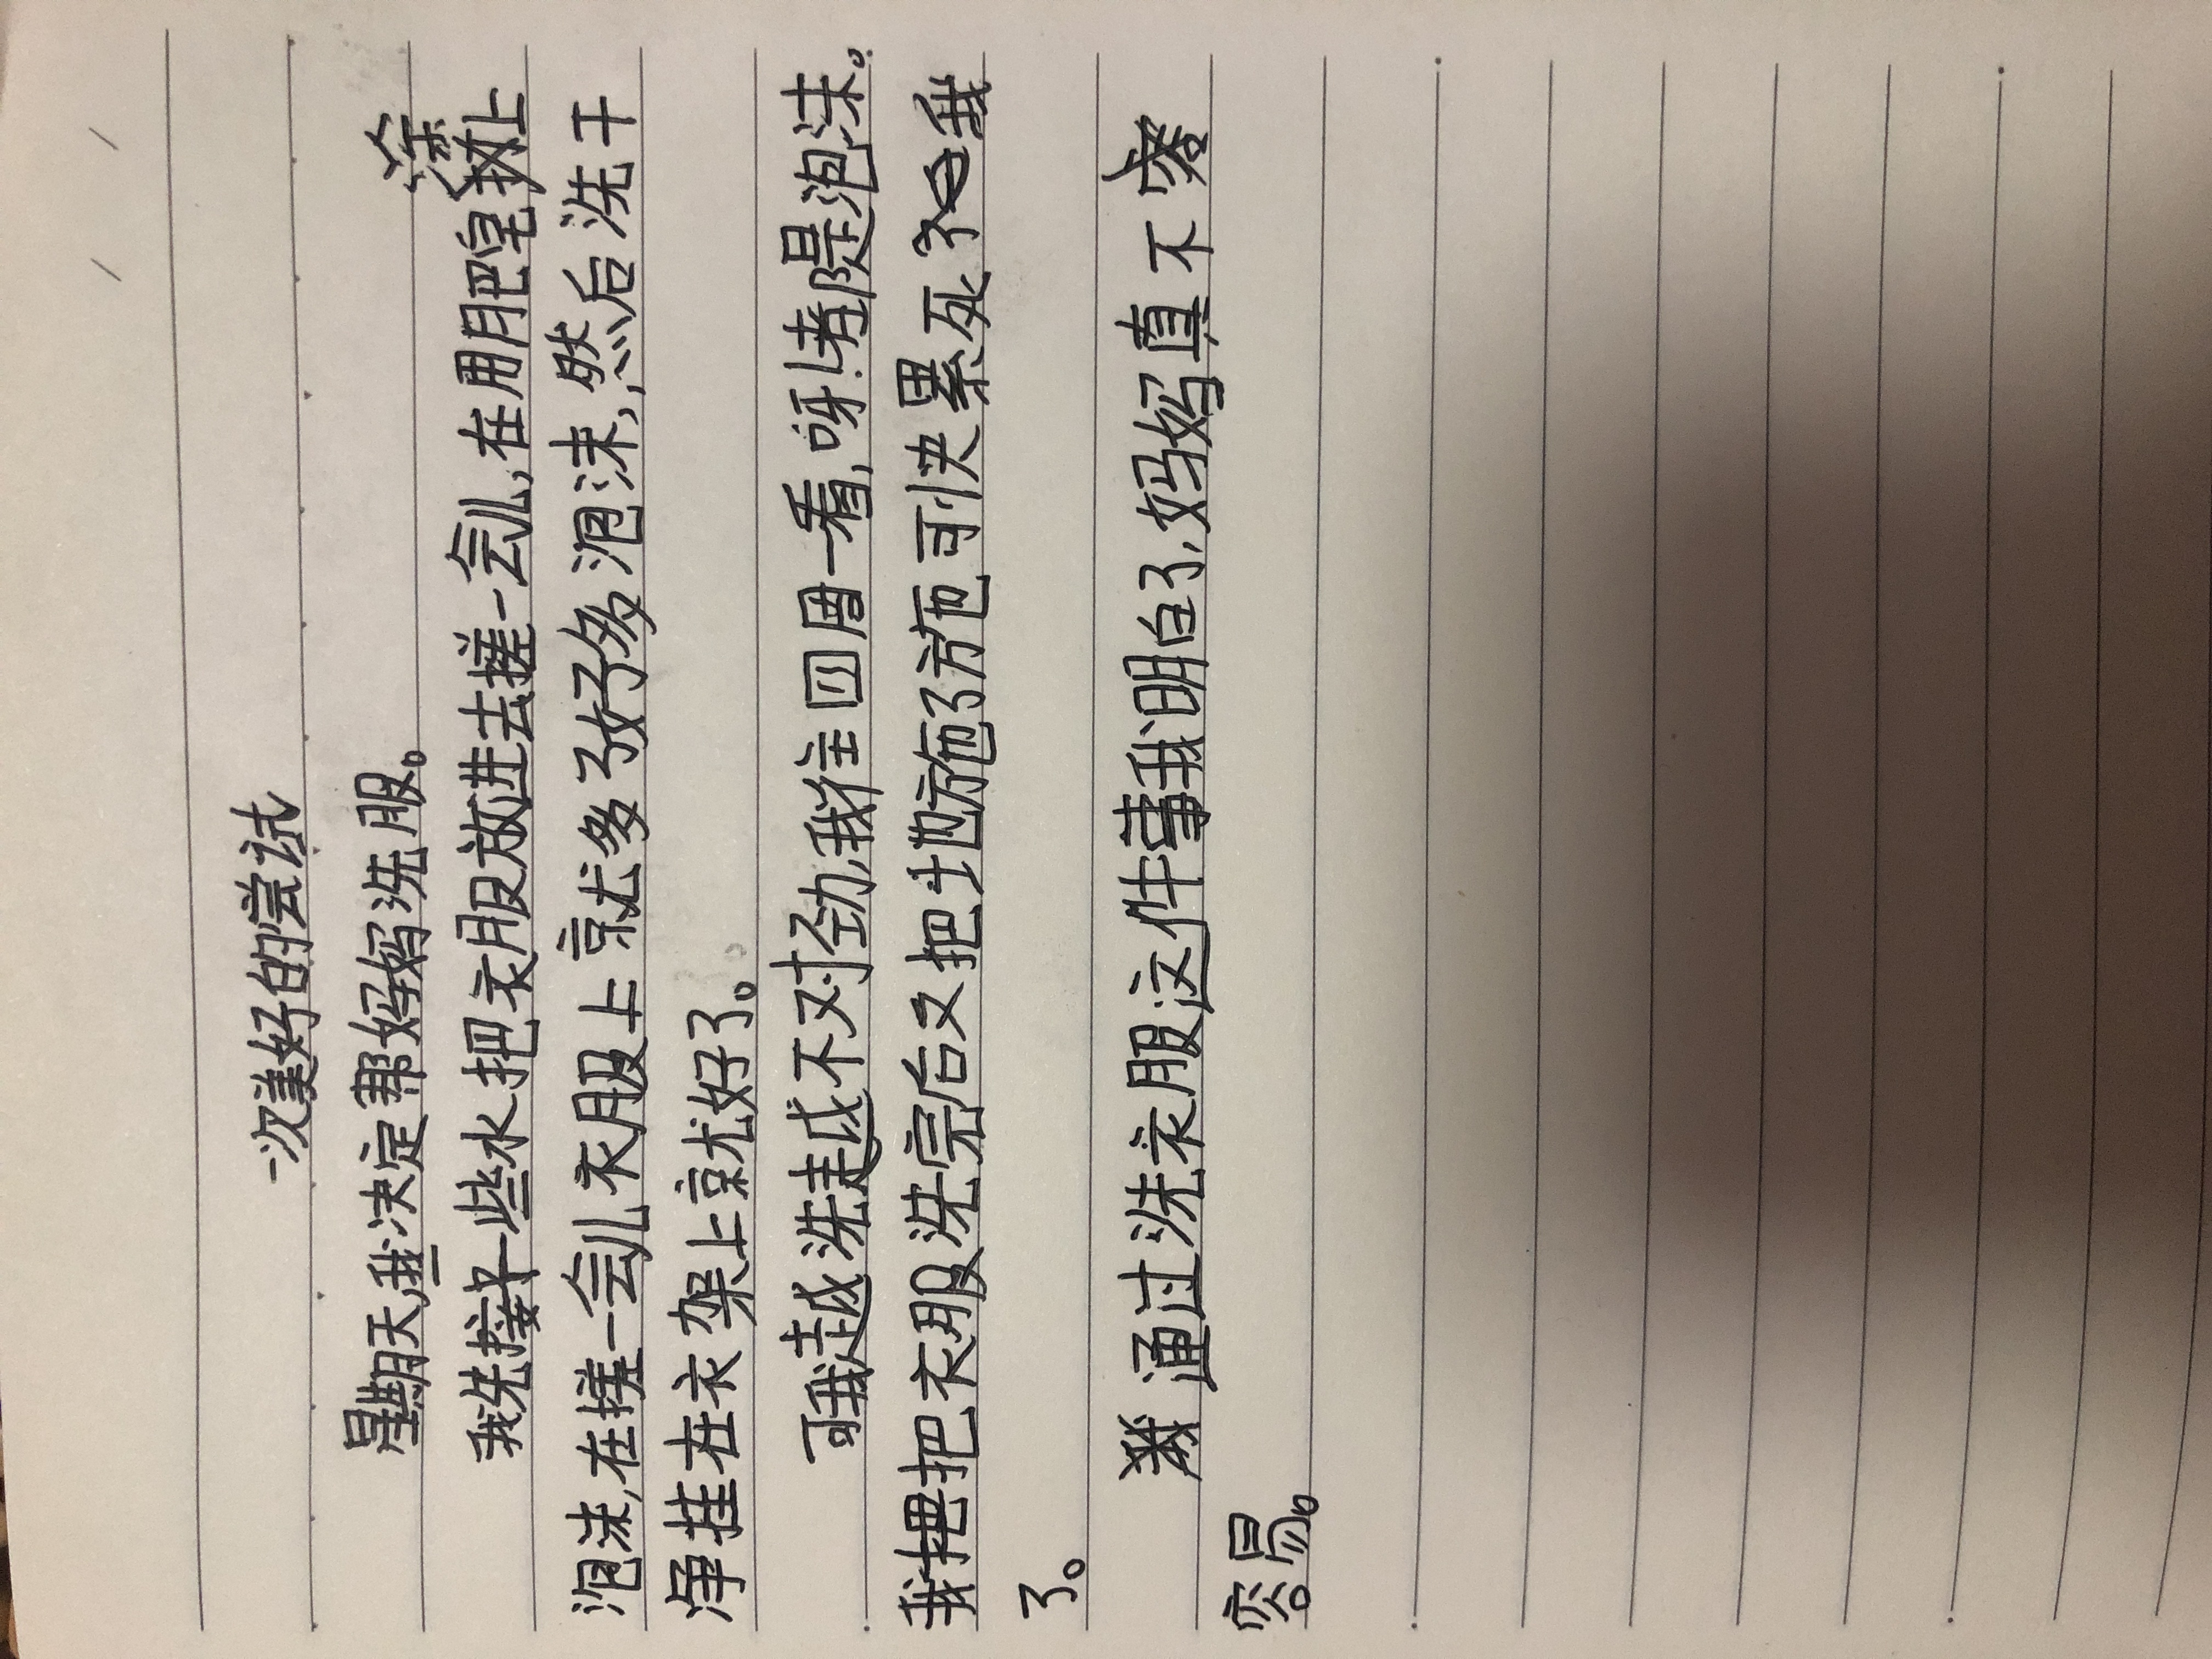 一次美好的尝试
星期天,我决定帮妈妈洗服。
我先接一些水把衣服放进去搓一会儿,在用肥皂涂上
泡沫,在搓一会儿衣服上就多了好多泡沫,然后洗干
净挂在衣架上就好了。
可我越洗越不对劲,我往四周一看,呀!堵是泡沫。
我把衣服洗完后又把地施了施可快累死我
了。
通过洗衣服这件事我明白了,妈妈真不
容易。